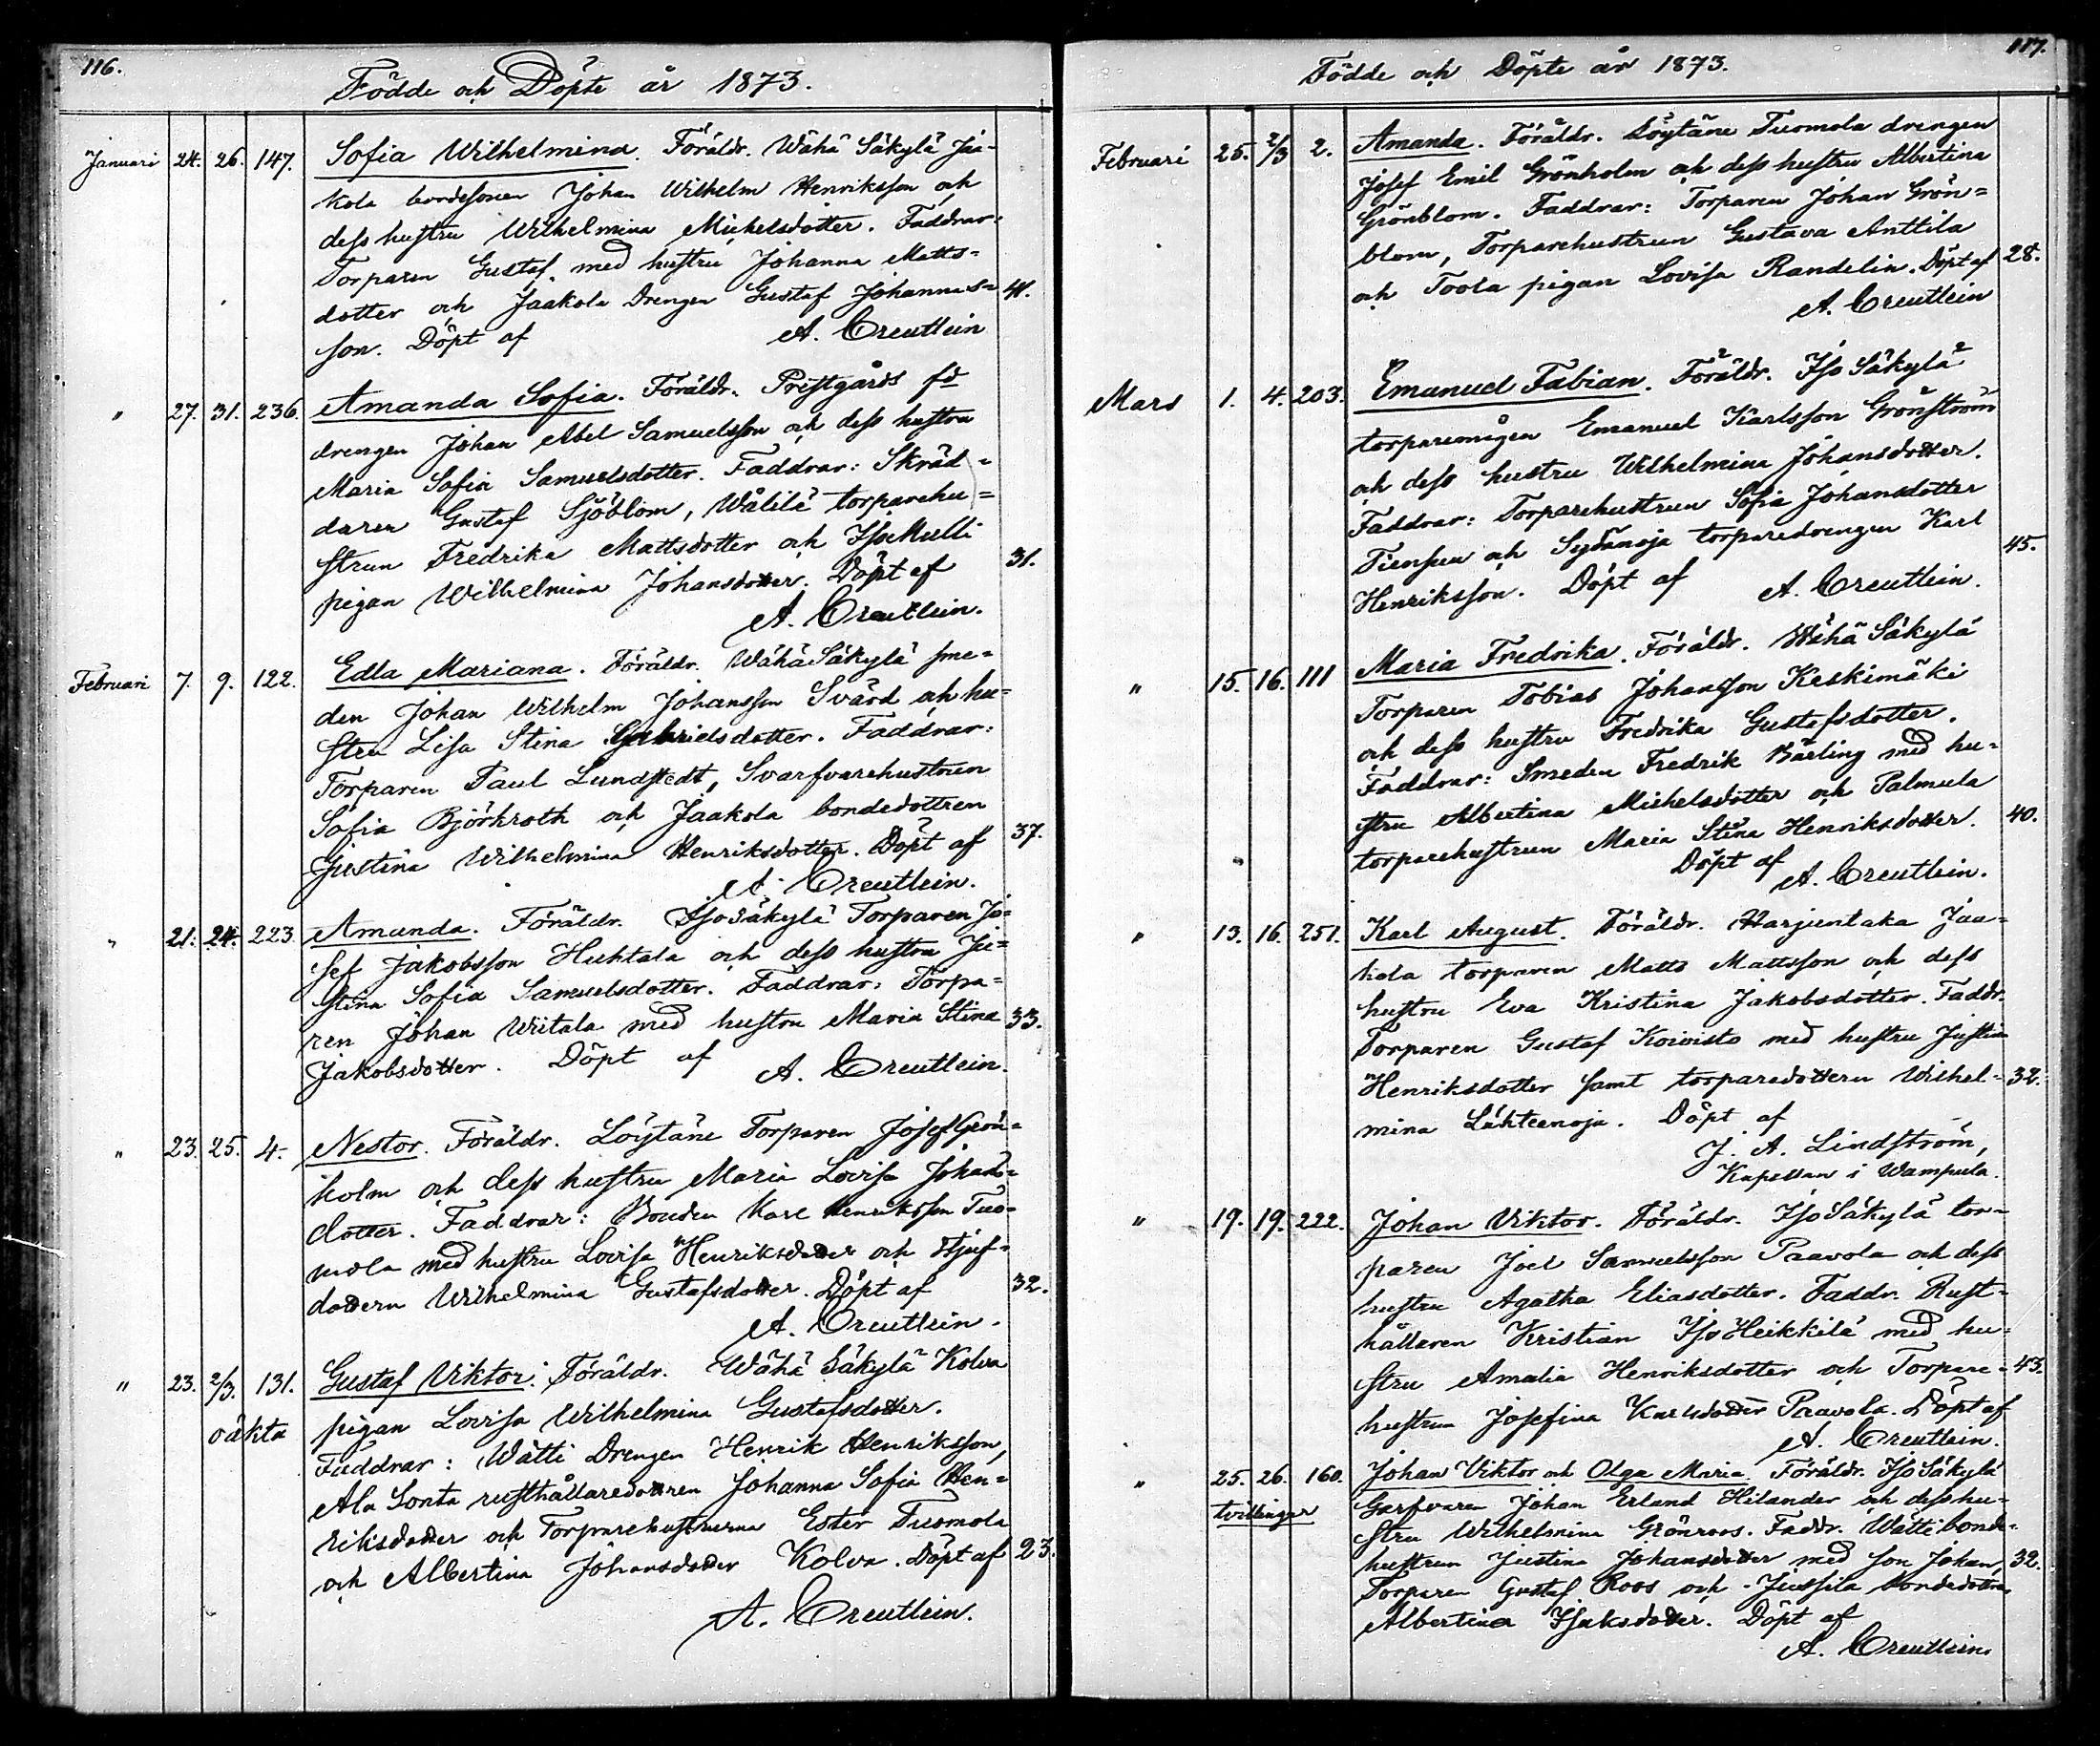 116.
Födde och Döpte år 1873.
Januari 24. 26. 147. Sofia Wilhelmina. Föräldr. Wähä Säkylä Jaa-
kola bondesonen Johan Wilhelm Henriksson och
dess hustru Wilhelmina Michelsdotter. Faddrar:
Torparen Gustaf med hustru Johanna Matts-
dotter och Jaakola Drengen Gustaf Johannes- 41.
son. Döpt af A. Creutlein
" 27. 31. 236. Amanda Sofia. Föräldr. Prestgårds fd
drengen Johan Abel Samuelsson och dess hustru
Maria Sofia Samuelsdotter. Faddrar: Skräd-
daren Gustaf Sjöblom, Wälilä torparehu-
strun Fredrika Mattsdotter och Iso Mulli
pigan Wilhelmina Johansdotter. Döpt af 31.
A. Creutlein.
Februari 7. 9. 122. Edla Mariana. Föräldr. Wähä Säkylä sme-
den Johan Wilhelm Johansson Svärd och hu-
stru Lisa Stina Gabrielsdotter. Faddrar:
Torparen Paul Lundstedt, Svarfvarehustrun
Sofia Björkroth och Jaakola bondedottren
Justina Wilhelmina Henriksdotter. Döpt af 37.
A. Creutlein.
" 21. 24. 223. Amanda. Föräldr. Iso Säkylä Torparen Jo-
sef Jakobsson Huhtala och dess hustru Ju-
stina Sofia Samuelsdotter. Faddrar: Torpa-
ren Johan Wiitala med hustru Maria Stina 33.
Jakobsdotter. Döpt af A. Creutlein.
" 23. 25. 4. Nestor. Föräldr. Löytäne Torparen Josef Grön-
holm och dess hustru Maria Lovisa Johans-
dotter. Faddrar: Bonden Karl Henriksson Tuo-
mola med hustru Lovisa Henriksdotter och Styf-
dottern Wilhelmina Gustafsdotter. Döpt af 32.
A. Creutlein.
" 23. 2/3. 131. Gustaf Viktor. Föräldr. Wähä Säkylä Kolva
oäkta pigan Lovisa Wilhelmina Gustafsdotter.
Faddrar: Wätti Drengen Henrik Henriksson,
Ala Sonta rusthållaredottren Johanna Sofia Hen-
riksdotter och Torparehustrurna Ester Tuomola
och Albertina Johansdotter Kolva. Döpt af 23.
A. Creutlein.
117.
Födde och Döpte år 1873.
Februari 25. 2/3 2. Amanda. Föräldr. Löytäne Tuomola drengen
Josef Emil Grönholm och dess hustru Albertina
Grönblom. Faddrar: Torparen Johan Grön-
blom, Torparehustrun Gustava Anttila
och Toola pigan Lovisa Randelin. Döpt af 28.
A. Creutlein
Mars 1. 4. 203. Emanuel Fabian. Föräldr. Iso Säkylä
torparemågen Emanuel Karlsson Grönström
och dess hustru Wilhelmina Johansdotter.
Faddrar: Torparehustrun Sofia Johansdotter
och Sydänoja torparedrengen Karl 45.
Henriksson. Döpt af A. Creutlein.
" 15. 16. 111 Maria Fredrika. Föräldr. Wähä Säkylä
Torparen Tobias Johansson Keskimäki
och dess hustru Fredrika Gustafsdotter.
Faddrar: Smeden Fredrik Bärling med hu-
stru Albertina Michelsdotter och Palmula
torparehustrun Maria Stina Henriksdotter. 40.
Döpt af A. Creutlein.
" 13. 16. 251. Karl August. Föräldr. Harjuntaka Jaa-
kola torparen Matts Mattsson och dess
hustru Eva Kristina Jakobsdotter. Faddr.
Torparen Gustaf Koivisto med hustru Justina
Henriksdotter samt torparedottern Wilhel- 32.
mina Lähteenoja. Döpt af
J. A. Lindström,
Kapellan i Wampula.
" 19. 19. 222. Johan Viktor. Föräldr. Iso Säkylä tor-
paren Joel Samuelsson Paavola och dess
hustru Agatha Eliasdotter. Faddr. Rust-
hållaren Kristian Iso Heikkilä med hu-
stru Amalia Henriksdotter och Torpare- 43.
hustrun Josefina Karlsdotter Paavola. Döpt af
A. Creutlein.
" 25. 26. 160. Johan Viktor och Olga Maria. Föräldr. Iso Säkylä
tvillingar Garfvaren Johan Erland Hilander och dess hu-
stru Wilhelmina Grönroos. Faddr. Wätti bonde-
hustrun Justina Johansdotter med son Johan, 32.
Torparen Gustaf Roos och Jussila bondedottren
Albertina Isaksdotter. Döpt af
A. Creutlein